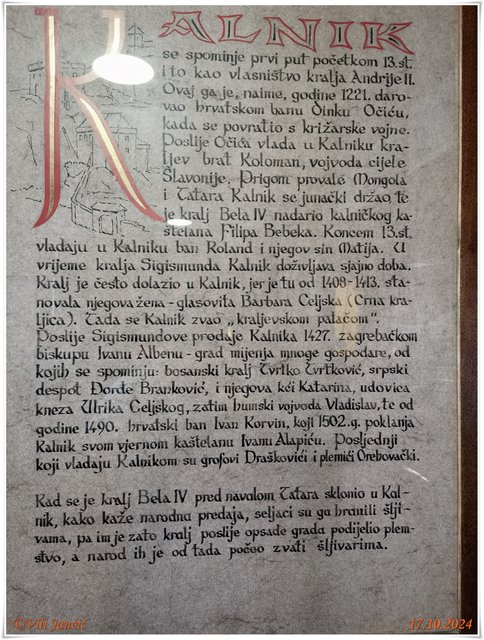 KALNIK
se spominje prvi put početkom 13.st.
i to kao vlasništvo kralja Andrije II.
Ovaj ga je, naime, godine 1221. daro-
vao hrvatskom banu Dinku Očiću,
kada se povratio s križarske vojne.
Poslije Očića vlada u Kalniku kra-
ljev brat Koloman, vojvoda cijele
Slavonije. Prigom provale Mongola
i Tatara Kalnik se junački držao, te
je kralj Bela IV nadario kalničkog ka-
štelana Filipa Bebeka. Koncem 13.st.
vladaju u Kalniku ban Roland i njegov sin Matija. U
vrijeme kralja Sigismunda Kalnik doživljava sjajno doba.
Kralj je često dolazio u Kalnik, jer je tu od 1408-1413. sta-
novala njegova žena - glasovita Barbara Celjska (Crna kra-
ljica). Tada se Kalnik zvao „kraljevskom palačom".
Poslije Sigismundove prodaje Kalnika 1427. zagrebačkom
biskupu Ivanu Albenu - grad mijenja mnoge gospodare, od
kojih se spominju: bosanski kralj Tvrtko Tvrtković, srpski
despot Đorđe Branković, i njegova kći Katarina, udovica
kneza Ulrika Celjskog, zatim humski vojvoda Vladislav, te od
godine 1490. hrvatski ban Ivan Korvin, koji 1502.g. poklanja
Kalnik svom vjernom kaštelanu Ivanu Alapiću. Posljednji
koji vladaju Kalnikom su grofovi Draškovići i plemići Orehovački.
Kad se je kralj Bela IV pred navalom Tatara sklonio u Kal-
nik, kako kaže narodna predaja, seljaci su ga hranili šlji-
vama, pa im je zato kralj poslije opsade grada podijelio plem-
stvo, a narod ih je od tada počeo zvati šljivarima.
©Vili Jančić
17.10.2024